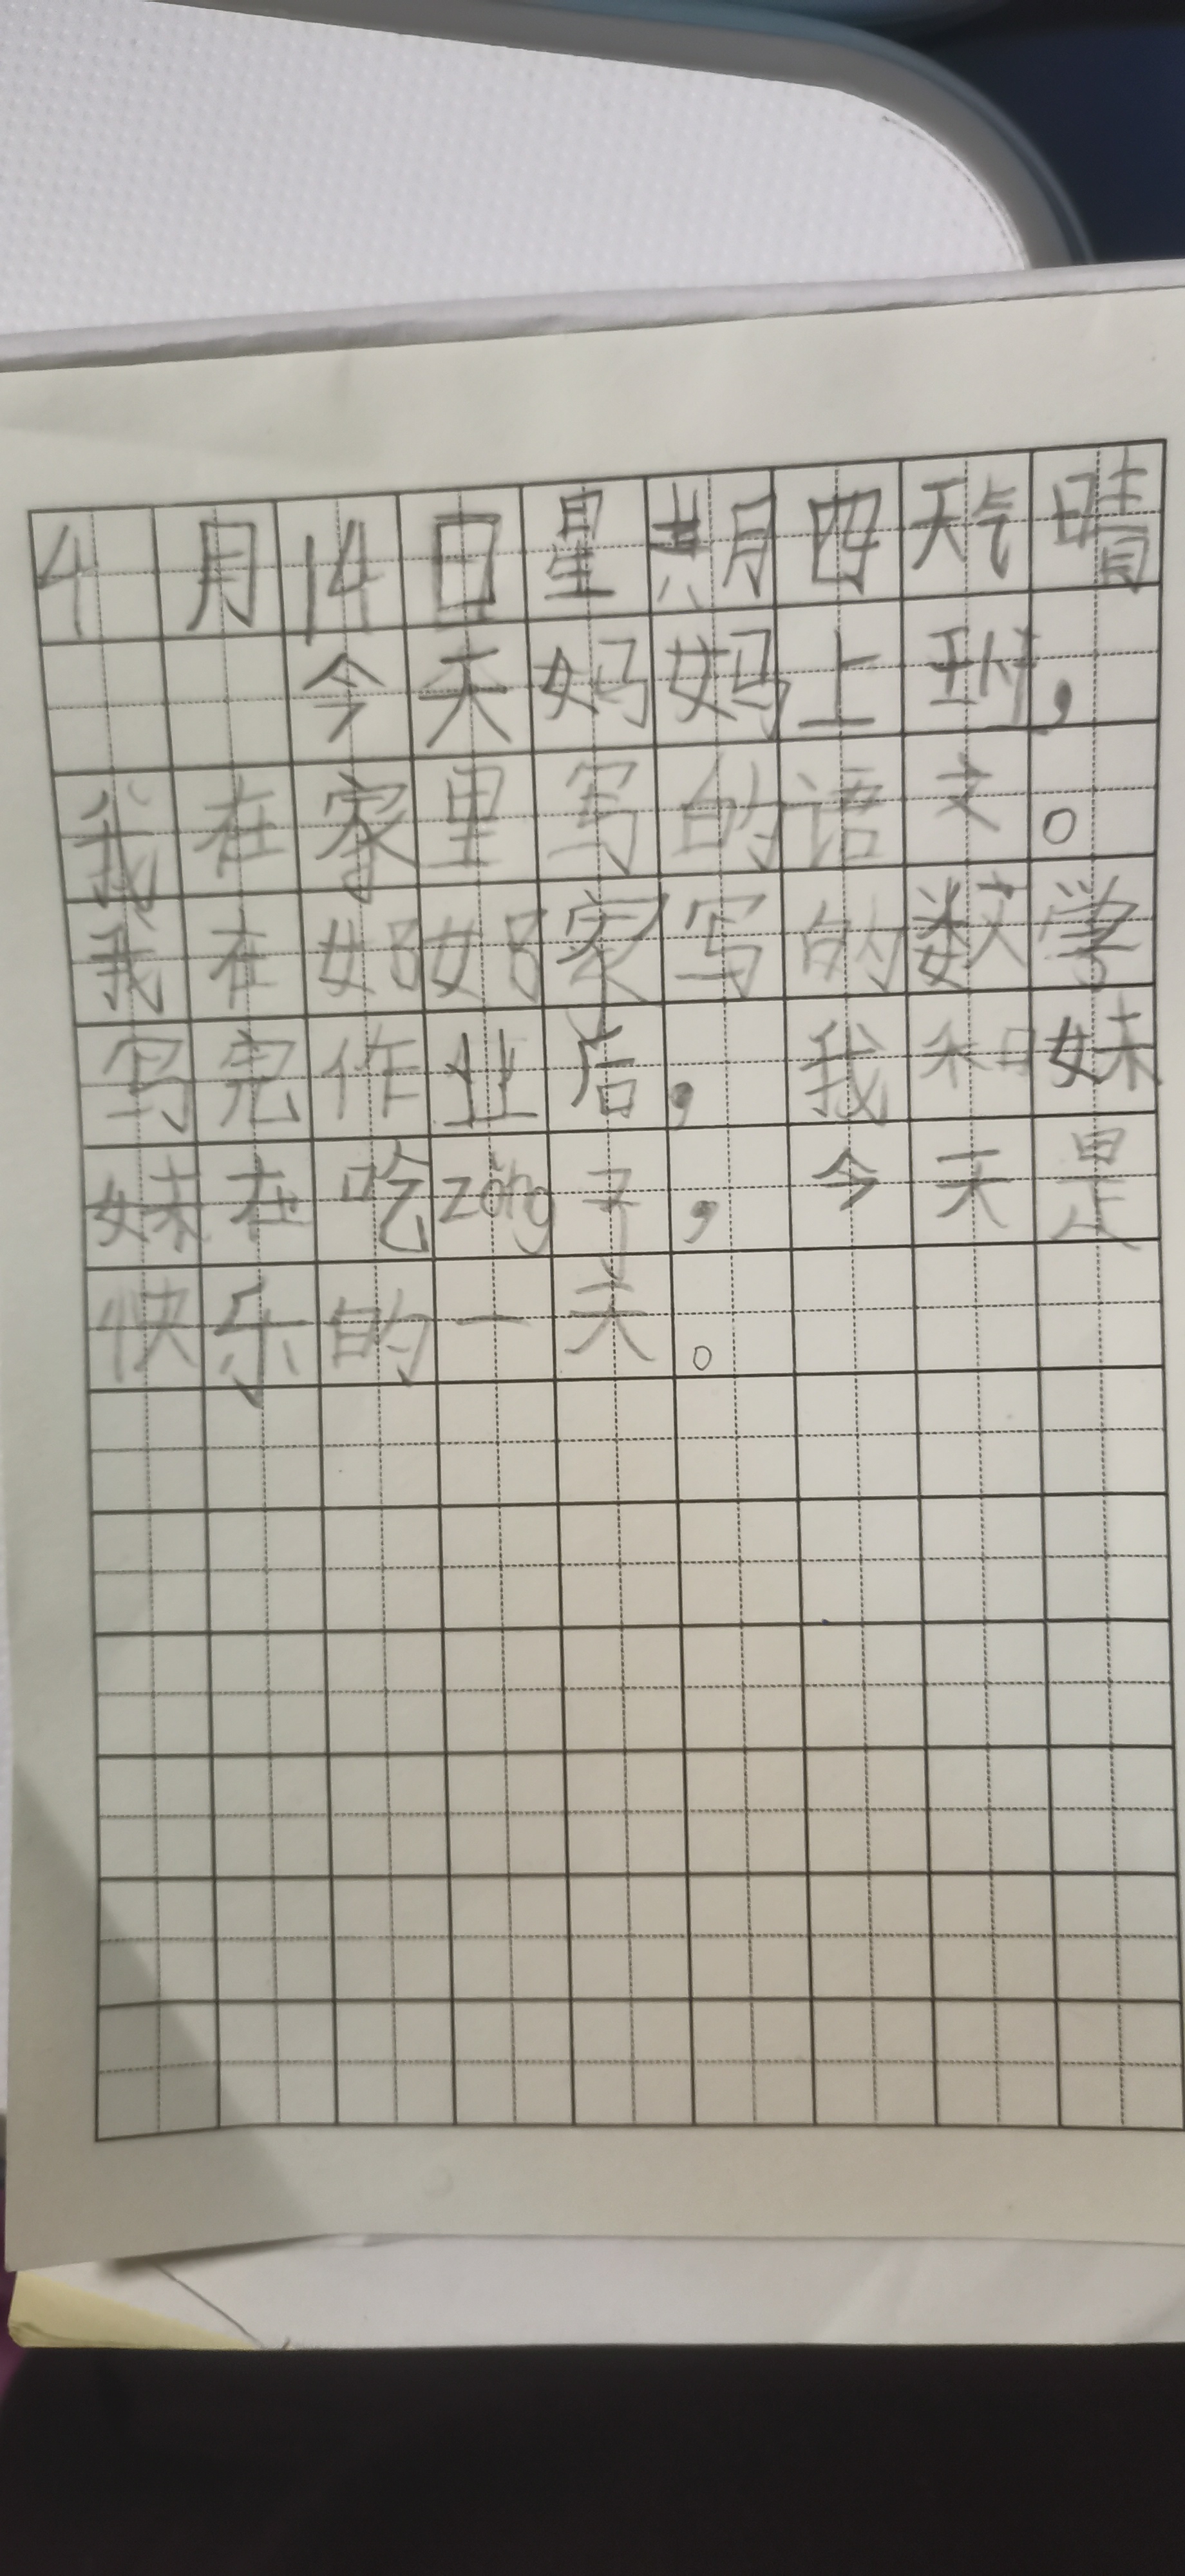 4月14日星期四天气晴
今天妈妈上班，
我在家里写的语文。
我在奶奶家写的数学
写完作业后，我和妹
妹在吃zòng子，今天是
快乐的一天。